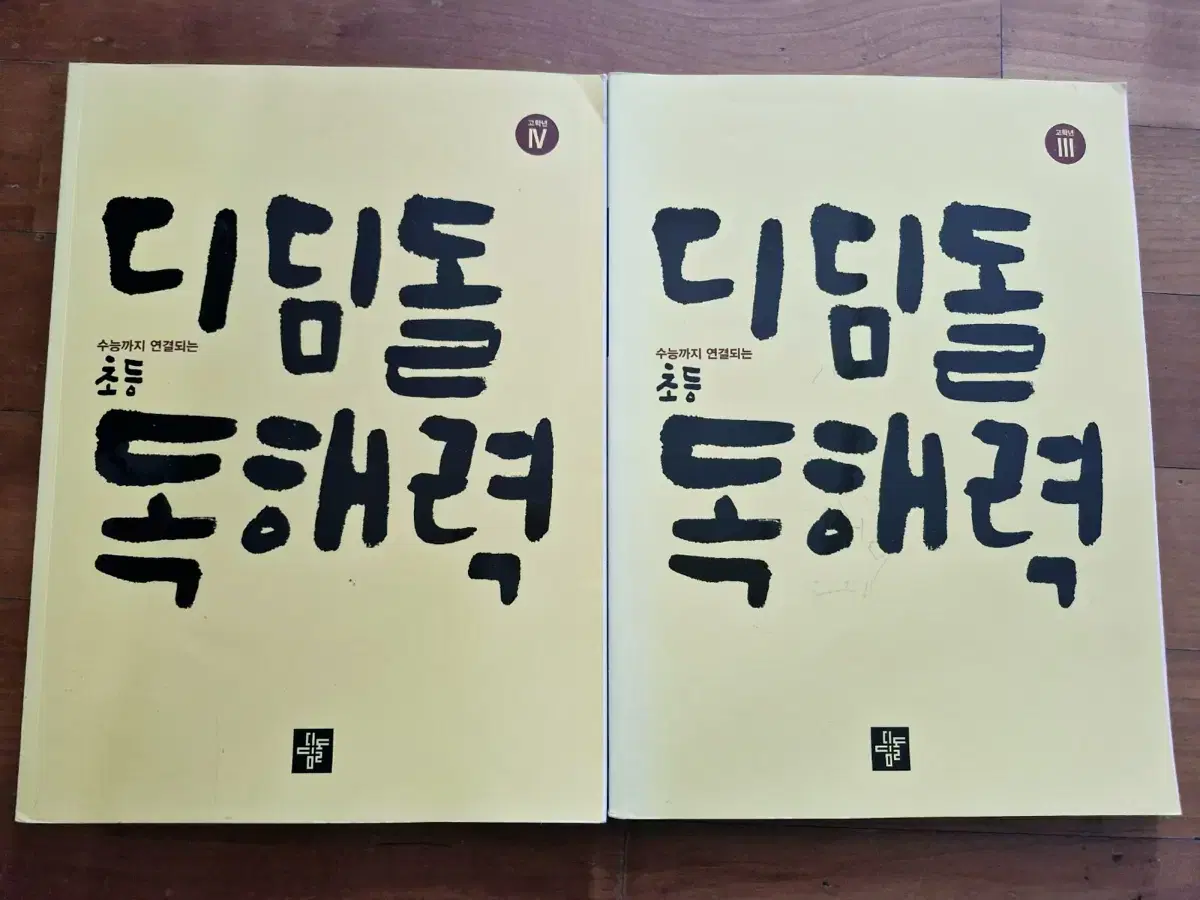 고학년
IV
디딤돌
수능까지 연결되는
초등
독해력
디딤돌
고학년
III
디딤돌
수능까지 연결되는
초등
독해력
디딤돌